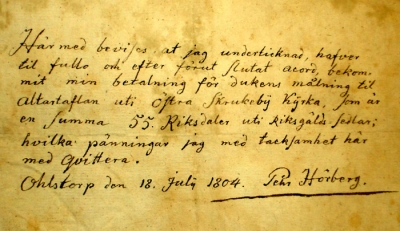 Här med bevises at jag undertecknad, hafver
til fullo och efter förut slutat acord, bekom-
mit min betalning för dukens målning til
Altartaflan uti Östra Skrukeby Kyrka, som är
en summa 55. Riksdaler uti Riksgälds sedlar;
hvilka pänningar jag med tacksamhet här
med qvittera.
Ohlstorp den 18. July 1804. Pehr Hörberg.